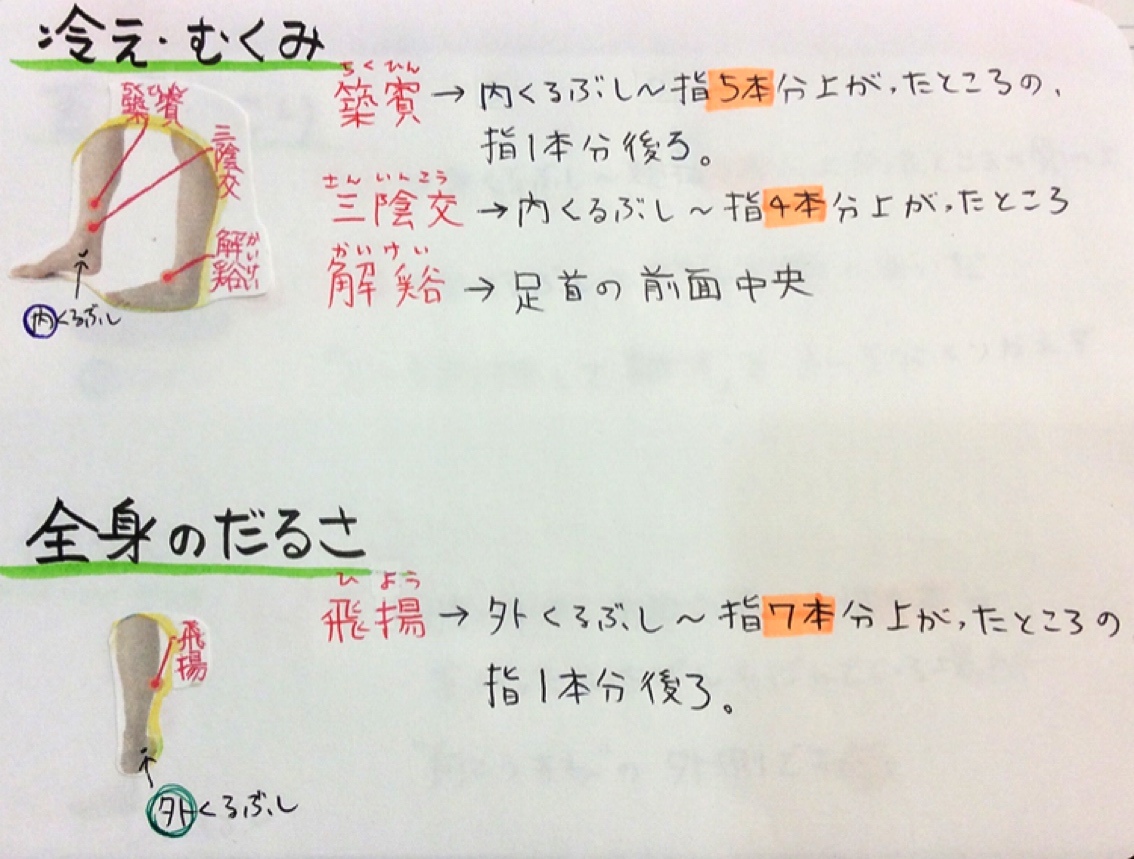 冷え・むくみ
ちくひん
築賓→内くるぶし～指5本分上がったところの、
指1本分後ろ。
さんいんこう
三陰交→内くるぶし～指4本分上がったところ
かいけい
解谿→足首の前面中央
ちくひん
築賓
三陰交
かいけい
解谿
内くるぶし
全身のだるさ
ひよう
飛揚→外くるぶし～指7本分上がったところの
指1本分後ろ。
飛揚
外くるぶし